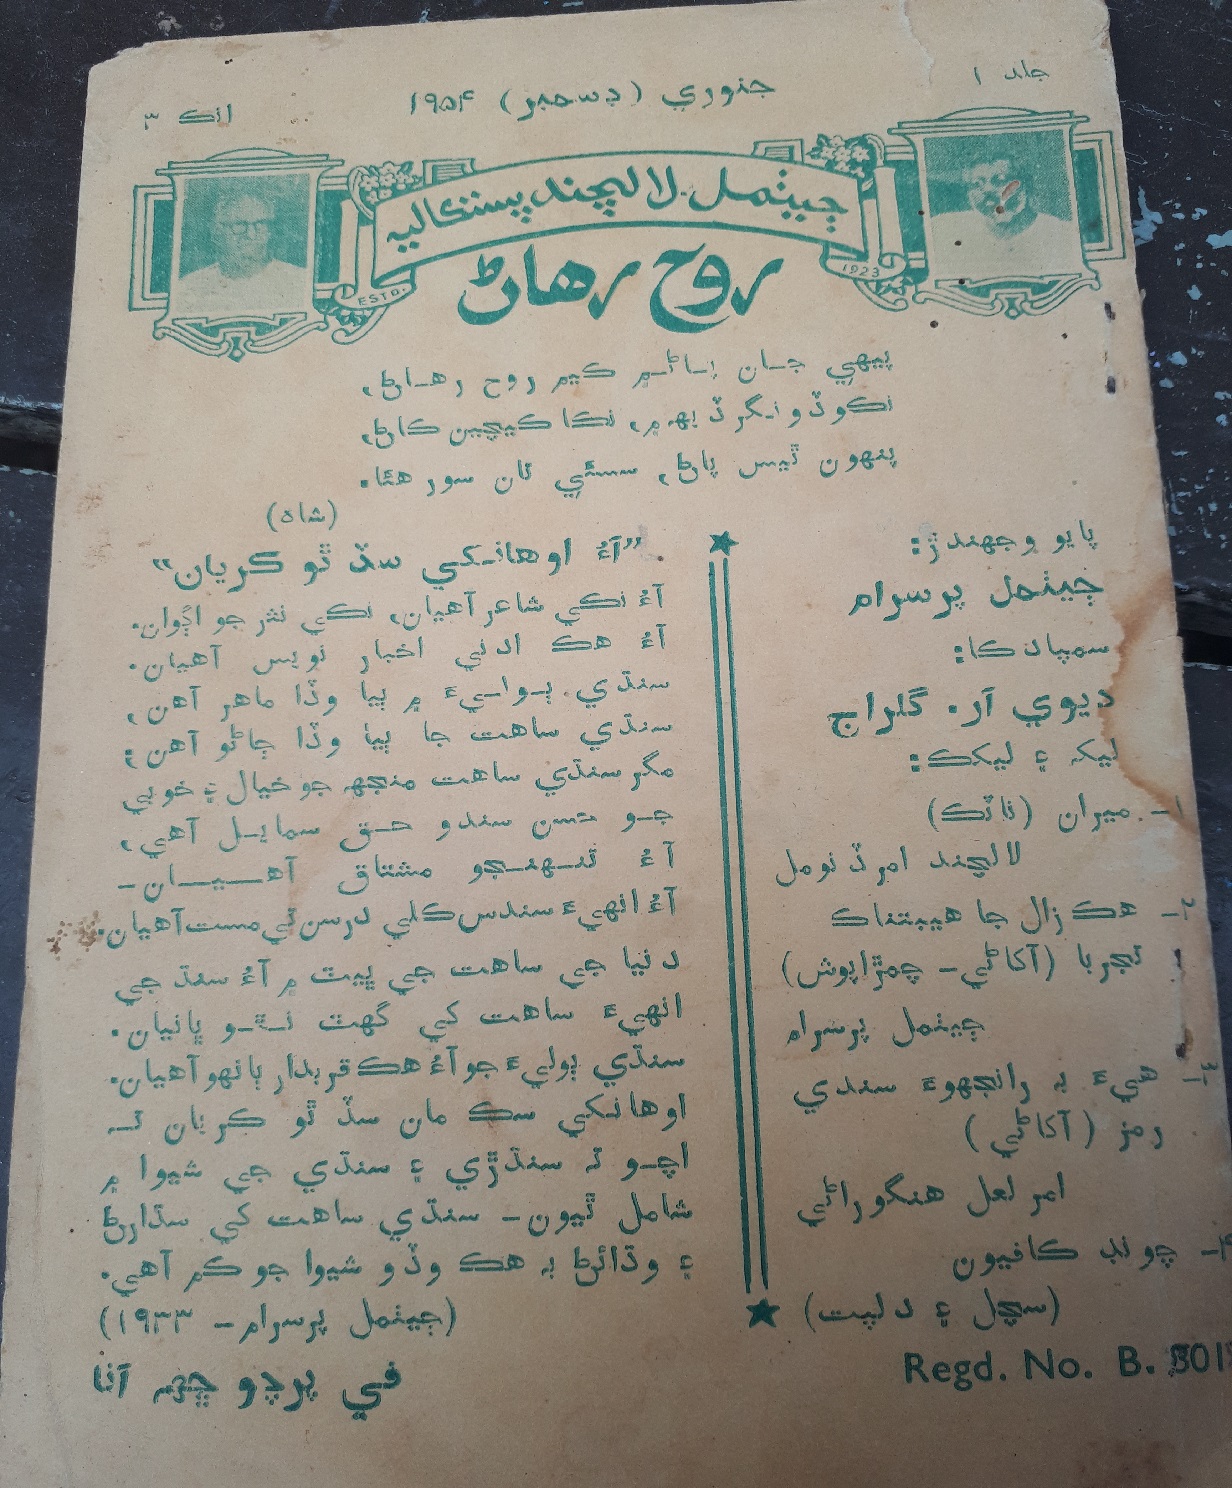 جلد ١
جنوري (ڊسمبر) ١٩٥۴
انڪ ٣
جيٺمل لالچند پستڪاليه
ESTD. 1923
روح رهاڻ
پيهي جان پاڻ ۾ ڪيم روح رهاڻ،
نڪو ڏونگر ڏيهه ۾، نڪا ڪيچين ڪاڻ،
پنهون ٿيس پاڻ، سسئي تان سور هئا.
(شاه)
پايو وجهندڙ:
ڄيٺمل پرسرام
سمپادڪا:
ديوي آر. گلراج
ليک ۽ ليکڪ:
١ـ ميران (ناٽڪ)
لالچند امرڏنومل
٢ـ هڪ زال جا هيبتناڪ
تجربا (آکاڻي ـ چمڙاپوش)
ڄيٺمل پرسرام
٣ـ هيءَ بہ رانجهوءَ سندي
رمز (آکاڻي)
امر لعل هنگوراڻي
۴ـ چونڊ ڪافيون
(سچل ۽ دلپت)
Regd. No. B.
”آءٌ اوهانکي سڏ ٿو ڪريان“
آءٌ نڪي شاعر آهيان، نڪي نثر جو اڳوان.
آءٌ هڪ ادنيٰ اخبار نويس آهيان.
سنڌي ٻوليءَ ۾ ٻيا وڏا ماهر آهن،
سنڌي ساهت جا ٻيا وڏا ڄاڻو آهن؛
مگر سنڌي ساهت منجهہ جو خيال ۽ خوبي
جو حسن سندو حق سمايل آهي،
آءٌ تنهنجو مشتاق آهيان ـ
آءٌ انهيءَ سندس ڪلي درسن تي مست آهيان.
دنيا جي ساهت جي ڀيٽ ۾ آءٌ سنڌ جي
انهيءَ ساهت کي گهٽ نٿو ڀانيان.
سنڌي ٻوليءَ جو آءٌ هڪ قربدار ٻانهو آهيان.
اوهانکي سڪ مان سڏ ٿو ڪريان تہ
اچو تہ سنڌڙي ۽ سنڌي جي شيوا ۾
شامل ٿيون ـ سنڌي ساهت کي سڌارڻ
۽ وڌائڻ بہ هڪ وڏو شيوا جو ڪم آهي.
(ڄيٺمل پرسرام ـ ١٩٣٣)
في پرچو ڇهہ آنا